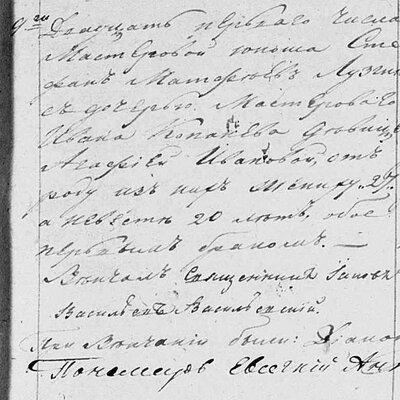 9го Двадцать перваго числа
Мастеровой юноша Сте
фанъ Матфеевъ Лузгин
съ дочерью Мастероваго
Ивана Копаева девица
Агафией Ивановой, отъ
роду изъ нихъ жениху 27
а невесте 20 летъ, обое
первымъ бракомъ. —
Венчалъ Священникъ Іаковъ
Васильевъ Васильевский.
При Венчаніи были: Діако
Пономарь Евгеній Анк